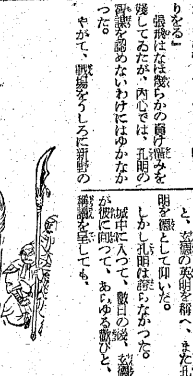 りをる』
張飛はなほ幾らかの負け惜みを
殘してゐたが、内心では、孔明の
智謀を認めないわけにはゆかなか
つた。
やがて、戰場をうしろに新野の
と、玄德の英明を稱へ、また孔
明を德として仰いだ。
しかし孔明は誇らなかつた。
城中に入つて、數日の後、玄德
が彼に向つて、あらゆる歡びと、
稱讚を呈しても、